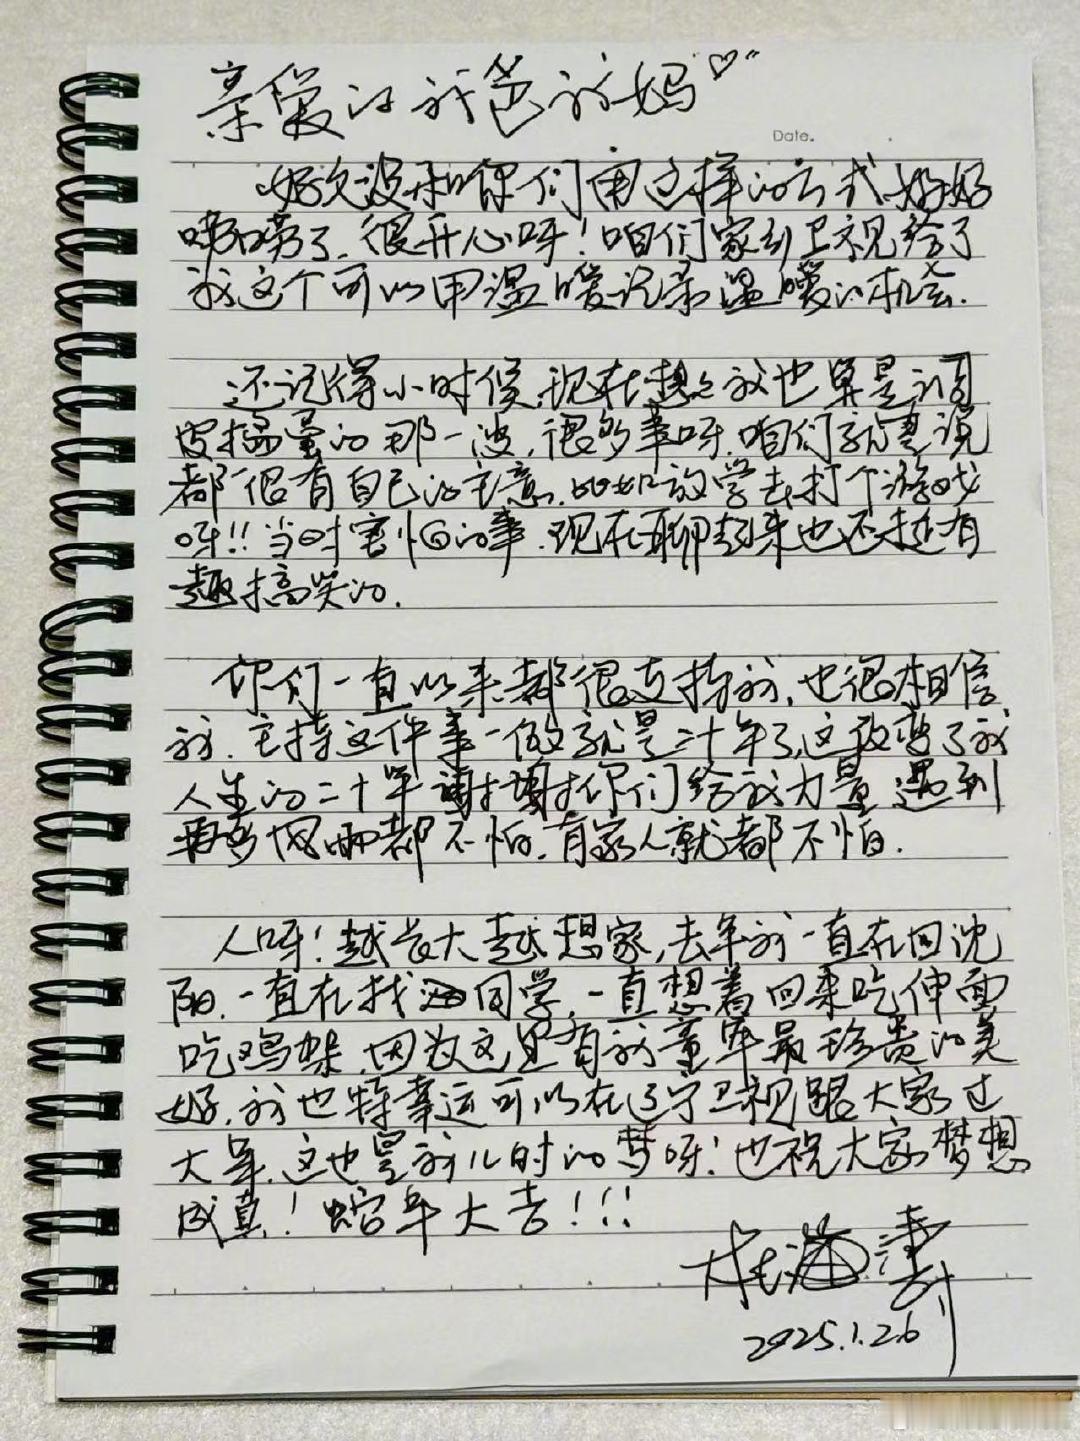 亲爱的我爸我妈
Date.
好久没和你们用这样的方式好好
唠唠了,很开心呀!咱们家到卫视给了
我这个可以用温暖记录温暖的机会.
还记得小时候,现在想想我也算是调
皮捣蛋的那一波,很多事呀,咱们就是说
都很有自己的主意.比如放学去打个游戏
呀!!当时害怕的事.现在聊起来也还挺有
趣搞笑的.
你们一直以来都很支持我,也很相信
我.主持这件事一做就是二十年了,这改变了我
人生的二十年谢谢你们给我力量 遇到
再多风雨都不怕.有家人就都不怕.
人呀!越长大越想家,去年我一直在回沈
阳.一直在找同学,一直想着回来吃伸面
吃鸡架.因为这里有我童年最珍贵的美
好.我也特幸运可以在辽宁卫视跟大家过
大年.这也是我儿时的梦呀!也祝大家梦想
成真!蛇年大吉!!!
杜海涛
2025.1.26